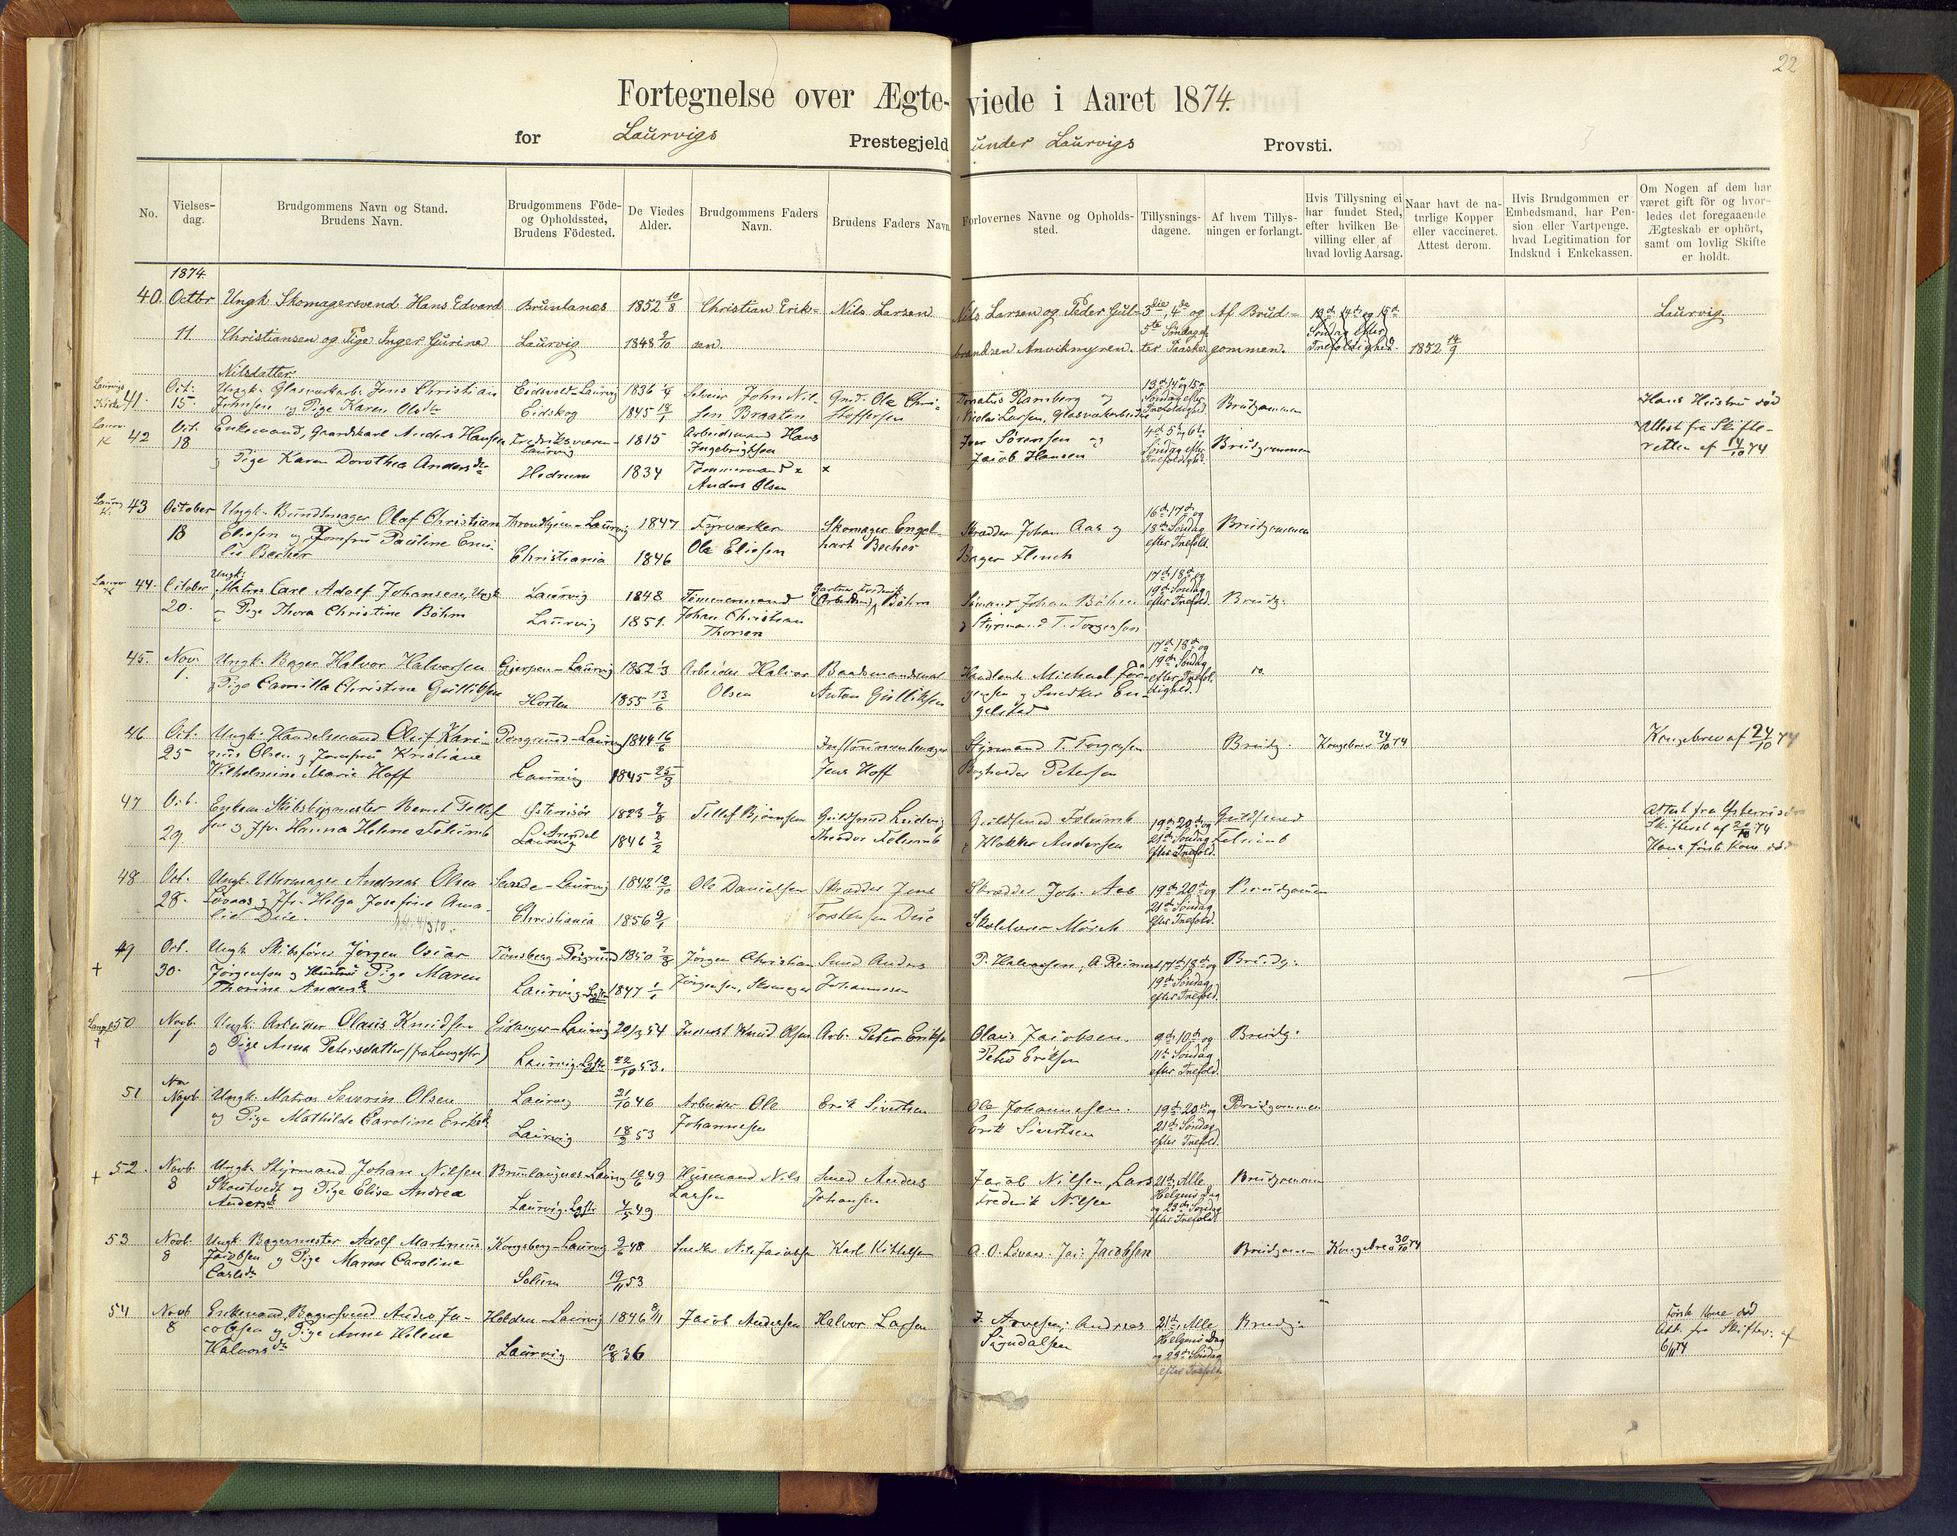 22
Fortegnelse over Ægteviede i Aaret 1874.
for Laurvigs Prestegjeld under Laurvigs Provsti.
No.
Vielsesdag.
Brudgommens Navn og Stand.
Brudens Navn.
Brudgommens Föde- og Opholdssted, Brudens Födested.
De Viedes Alder.
Brudgommens Faders Navn.
Brudens Faders Navn.
Forlovernes Navne og Opholdssted.
Tillysningsdagene.
Af hvem Tillysningen er forlangt.
Hvis Tillysning ei har fundet Sted, efter hvilken Bevilling eller af hvad lovlig Aarsag.
Naar havt de naturlige Kopper eller vaccineret. Attest derom.
Hvis Brudgommen er Embedsmand, har Pension eller Vartpenge. hvad Legitimation for Indskud i Enkekassen.
Om Nogen af dem har været gift för og hvorledes det foregaaende Ægteskab er ophört, samt om lovlig Skifte er holdt.
1874.
40. Octbr Ungk. Skomagersvend Hans Edvard Brunlanes 1852 10/8 Christian Erik- Nils Larsen Nils Larsen og Peder Gul- 3die, 4de og Af Brud- 13de 14de og 15de Laurvig.
11. Christiansen og Pige Inger Gurine Laurvig 1848 2/10 sen. brandsen Anvikmyren. 5te Søndag ef- gommen. Søndag efter 1852 14/9
Nilsdatter. ter Paaske Trefoldighed.
Laurvigs Kirke 41. Oct: Ungk. Glasværkarb. Jens Christian Eidsvold-Laurvig 1836 Selveier John Nil- Gmd. Ole Chri- Donatus Ramberg og 13de 14 og 15de Brudgommen Hans Hustru død
15. Johnsen og Pige Karen Olsdtr Eidskog 1845 18/1 sen Braaten stoffersen Nicolai Larsen, Glasværkarbeider Søndag efter Trefoldighed
Laurv. K 42 Oct. Enkemand, Gaardskarl Anders Hansen Fredriksværn-Laurvig 1815 Arbeidsmand Hans Ingebrigtsen Iver Sörensen og 4de 5 og 6te Brudgommen Attest fra Skifte-
18 og Pige Karen Dorothea Andersdtr Hedrum 1834 Tömmermand x Anders Olsen x Jacob Hansen Søndag efter Trefoldighed. retten af 14/10 74
Laurv. K. 43 October Ungk. Bundtmager Olaf Christian Throndhjem-Laurvig 1847 Fyrværker Skomager Engel- Skrædder Johan Aas og 16de 17de og Brudgommen
18 Eliesen og Jomfru Pauline Emi- Christiania 1846 Ole Eliesen hart Becher Bager Flinch 18de Søndag
lie Becher efter Trefold.
Laurv. K 44. October Ungk. Matros Carl Adolf Johansen, Laurvig 1848 Tömmermand Gartner Fredrik (Arbeidsmd) Böhm Sömand Johan Böhm 17de 18de og Brudg:
20. og Pige Thora Christine Böhm Laurvig 1851. Johan Christian Thorsen og Styrmand T. Torgensen 19de Søndag efter Trefold.
45. Nov. Ungk. Bager Halvor Halvorsen Gjerpen-Laurvig 1852 1/3 Arbeider Halvor Baadsmandsmat Handlende Michael Jör- 17de 18de og
1. og Pige Camilla Christine Gulliksen Horten 1855 13/6 Olsen Anton Gulliksen gensen og Snedker En- 19de Søndag
gelstad efter Trefoldighed.
46 Oct: Ungk. Handelsmand Oluf Kari- Porsgrund-Laurvig 1844 16/6 Instrumentmager Styrmand T. Torgersen Brudg: Kongebrev 24/10 74 Kongebrev af 24/10 74
25 nius Olsen og Jomfru Kristiane Laurvig 1845 25/3 Jens Hoff Bogholder Petersen
Wilhelmine Marie Hoff
47 Oct. Enkem. Skibsbygmester Bernt Tellef- Österisör 1823 Tellef Björnsen Guldsmed Ludvig Guldsmed Felumb 19de 20de og Guldsmed Attest fra Österrisörs
29. sen og Jfr. Hanna Helene Felumb Arendal Laurvig 1846 2/2 Theodor Felumb og Klokker Andersen 21de Søndag Felumb Skifteret af 20/10 74
efter Trefold. Hans første Kone død
48 Oct: Ungk. Uhrmager Andreas Olsen Levaas 1842 12/10 Ole Danielsen Skrædder Jens Skrædder Joh. Aas 19de 20de og Brudgommen
28. og Jfr. Helga Josefine Ama- Christiania 1856 9/1 Torstensen Due Skolelærer Mörch 21de Søndag
lie Due. efter Trefold.
49 Oct. Ungk. Skibsförer Jörgen Oscar Tönsberg-Porsgrund 1850 Jörgen Christian Smed Anders P. Halvorsen, A. Reimers 17de 18de og Brudg:
+ 30. Jörgensen og Hustru Pige Maren Laurvig-Lgstr 1847 1/1 Jörgensen, Skomager Johannesen 19de Søndag
Thorine Andersdtr efter Trefold.
Langest 50 Novb. Ungk. Arbeider Olaus Knudsen Eidanger-Laurvig 20/3 54 Inderst Knud Olsen Arb. Peter Eriksen Olaus Jacobsen. 9de 10de og Brudg:
+ 1 og Pige Anna Petersdatter (fra Langestr) Laurvig-Lgstr 22/10 53. Peter Eriksen 11te Søndag
efter Trefold.
51 Nov. Ungk. Matros Severin Olsen Laurvig 21/10 46 Arbeider Ole Erik Sivertsen Ole Johannesen. 19de 20de og Brudgommen
og Pige Mathilde Caroline Eriksdtr Laurvig 18/2 53 Johannesen Erik Sivertsen 21de Søndag
efter Trefold.
+ 52. Novb. Ungk. Styrmand Johan Nilsen Brunlangnes-Laurvig 49 Husmand Nils Smed Anders Jacob Nilsen, Lars 21de, Alle Brudgommen
8 Skoutvedt og Pige Elise Andrea Laurvig-Lgstr 4/5 49 Larsen Johansen Frederik Nilsen Helgens Dag
Andersdtr og 23de Søndag efter Trefold.
53 Novb. Ungk. Bagermester Adolf Martinus Kongsberg-Laurvig 9/6 48 Snedker Nils Jacobsen Karl Kittelsen A. O. Jac: Jacobsen Brudgommen Kongebrev 30/10 74
8 Jacobsen og Pige Maren Caroline Solum 19/11 53
Carlsdtr
54 Novb Enkemand, Bagersvend Anders Ja- Holden-Laurvig 1846 8/11 Jacob Andersen Halvor Larsen J. Arvesen, Andreas 21de, Alle Brudg: Første Kone død
8 cobsen og Pige Anne Helene Laurvig 10/8 36 Sigvaldsen Helgens Dag Att. fra Skifter. af
Halvorsdtr og 23de Søndag efter Trefold. 6/11 74